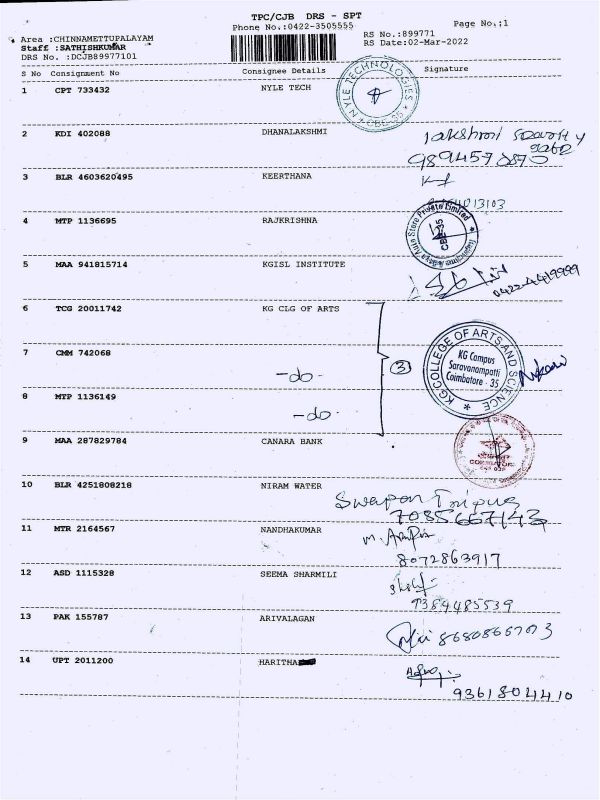 TPC/CJB DRS - SPT
Phone No.:0422-3505555
Page No.:1
Area :CHINNAMETTUPALAYAM
Staff :SATHISHKUMAR
DRS No. :DCJB89977101
RS No.:899771
RS Date:02-Mar-2022
S No Consignment No Consignee Details Signature
1 CPT 733432 NYLE TECH
NYLE TECHNOLOGIES
CBE-35
2 KDI 402088 DHANALAKSHMI
3 BLR 4603620495 KEERTHANA
4 MTP 1136695 RAJKRISHNA
Auto Store Private Limited
CBE-35
5 MAA 941815714 KGISL INSTITUTE
0422-4419999
6 TCG 20011742 KG CLG OF ARTS
7 CMM 742068 -do-
3
KG COLLEGE OF ARTS AND SCIENCE
KG Campus
Saravanampatti
Coimbatore - 35
8 MTP 1136149 -do-
9 MAA 287829784 CANARA BANK
10 BLR 4251808218 NIRAM WATER
Swapan
7085667143
11 MTR 2164567 NANDHAKUMAR
8072863917
12 ASD 1115328 SEEMA SHARMILI
13 PAK 155787 ARIVALAGAN
14 UPT 2011200 HARITHA
9361804410